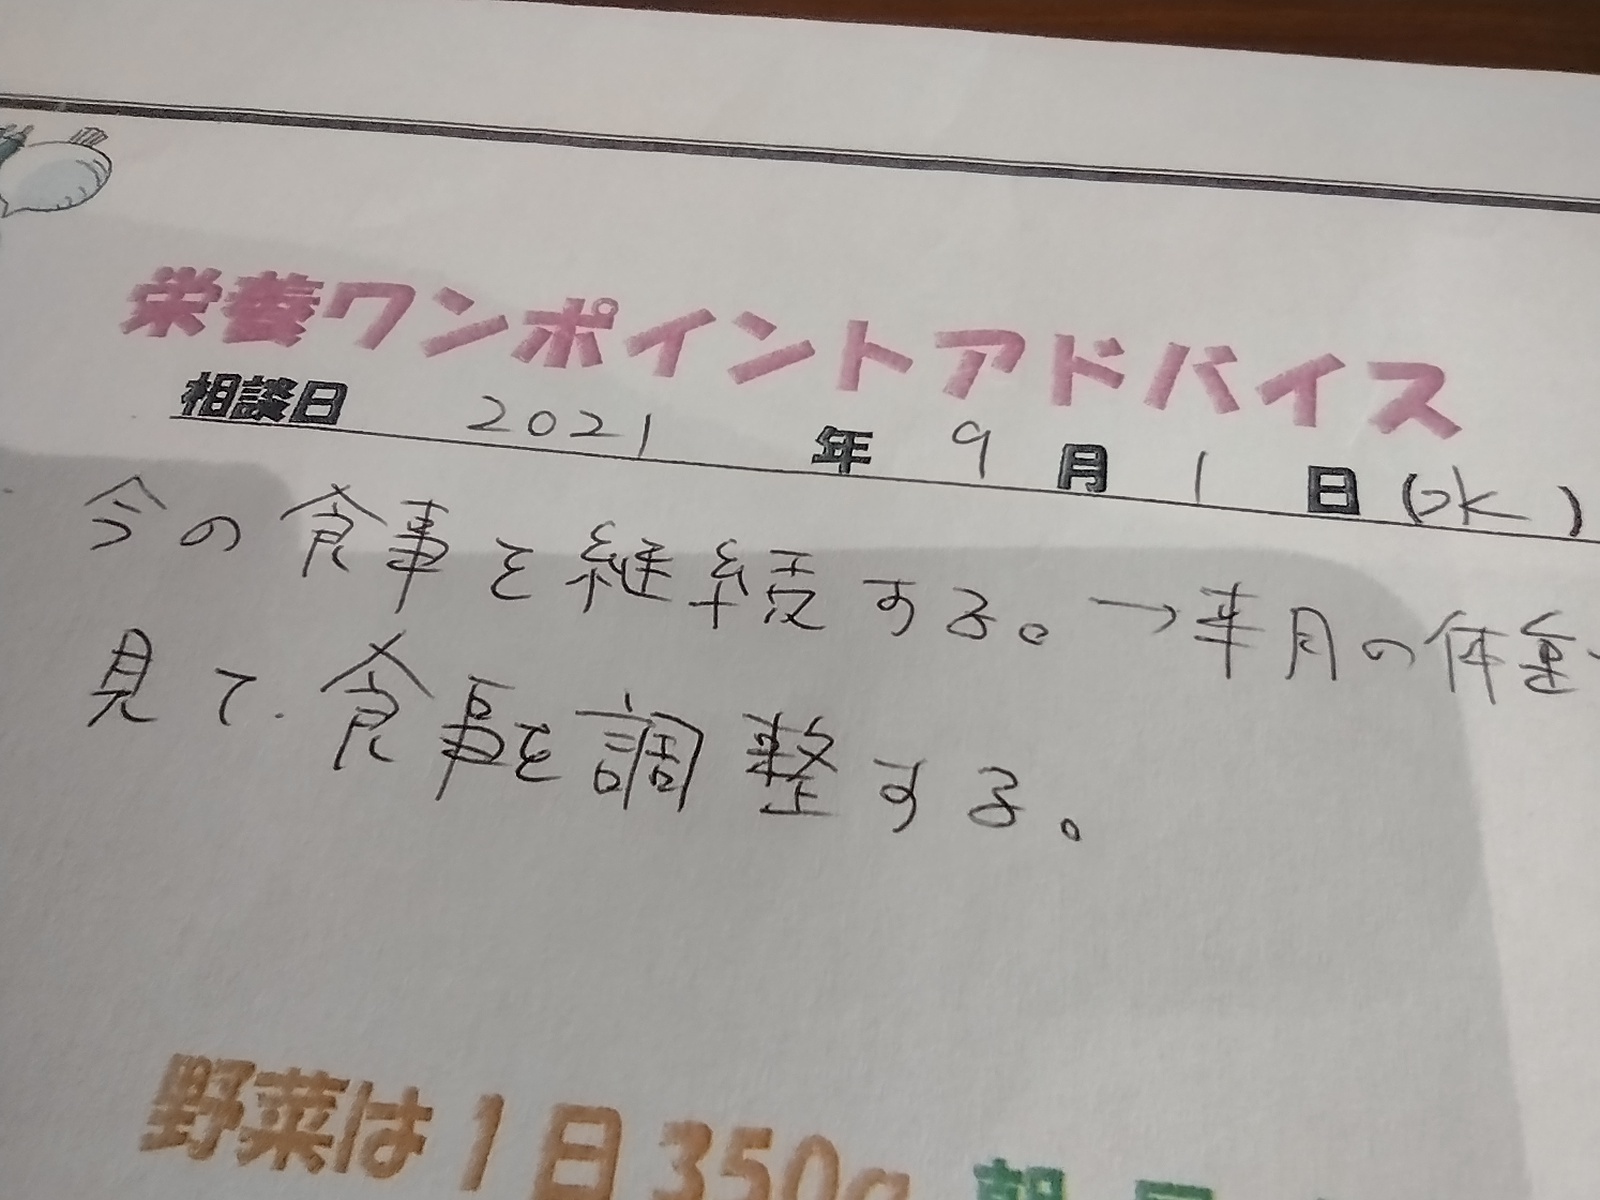 栄養ワンポイントアドバイス
相談日 2021 年 9 月 1 日 (水)
今の食事を継続する。→来月の体重
見て、食事を調整する。
野菜は1日350g 朝